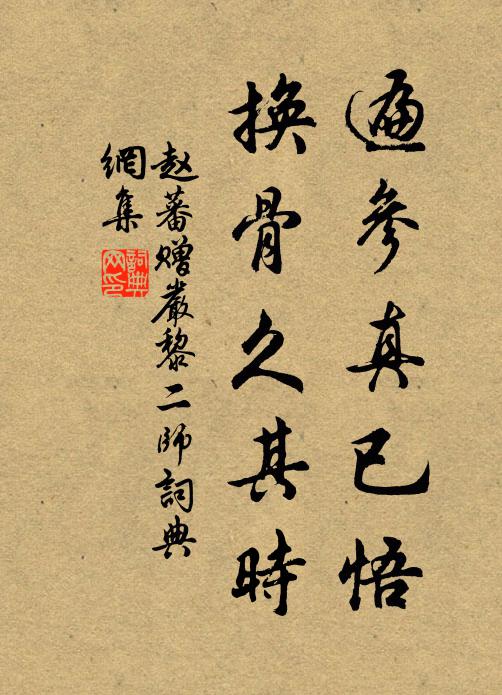 遍參真已悟
換骨久其時
赵蕃赠嚴黎二師詞典
網集
詞典
网印